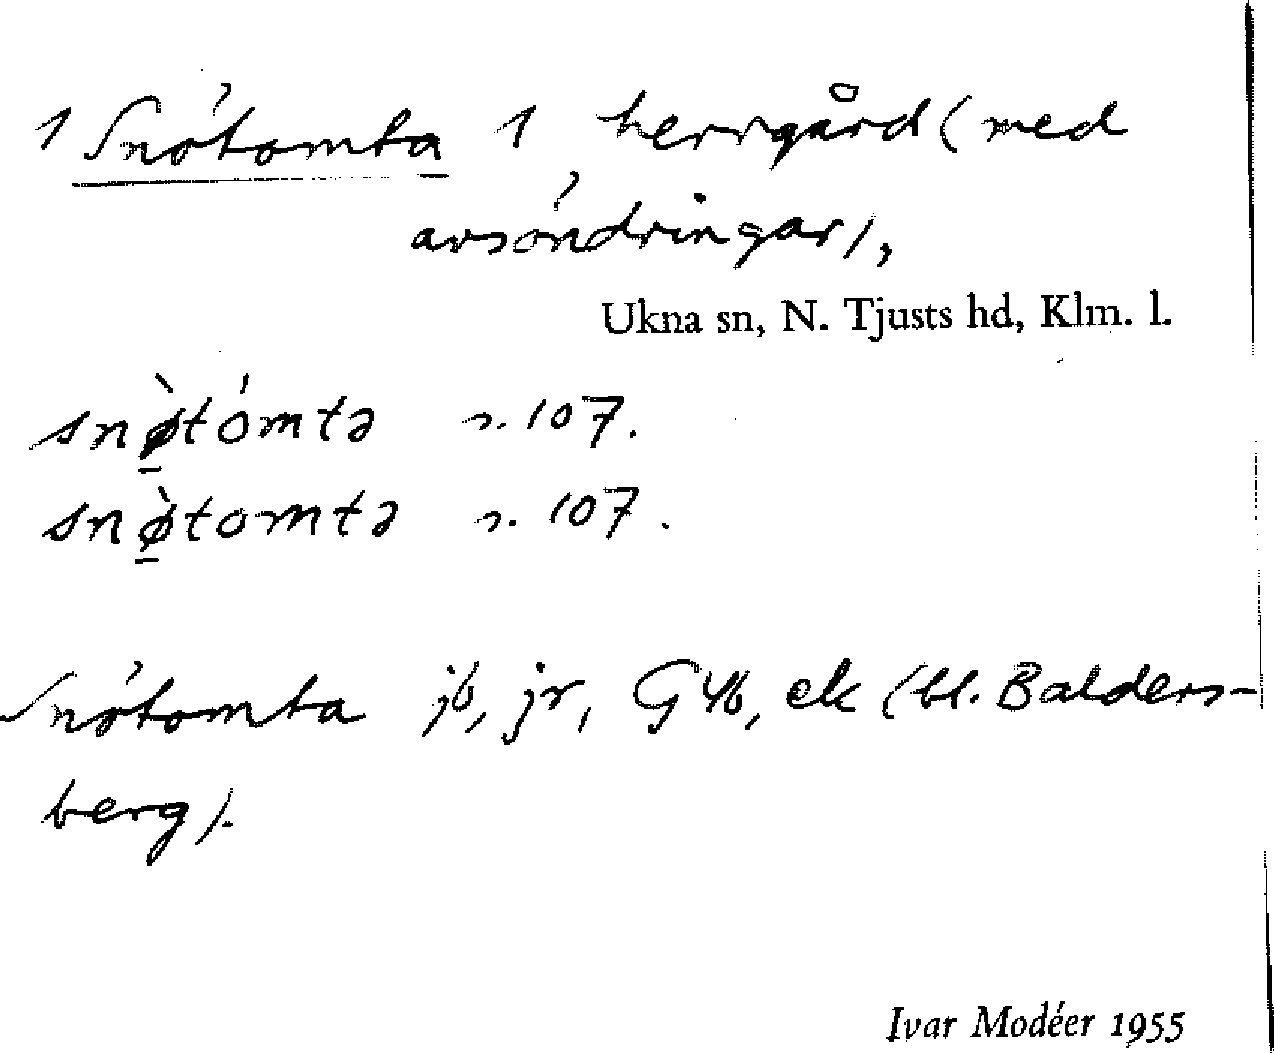 1 Snótomta 1 herrgård (med
avsóndringar),
Ukna sn, N. Tjusts hd, Klm. l.
snø̀tómtə s. 107.
snø̀tomtə s. 107.
Snótomta jb, jr, G 46, ek (bl. Balders-
berg).
Ivar Modéer 1955